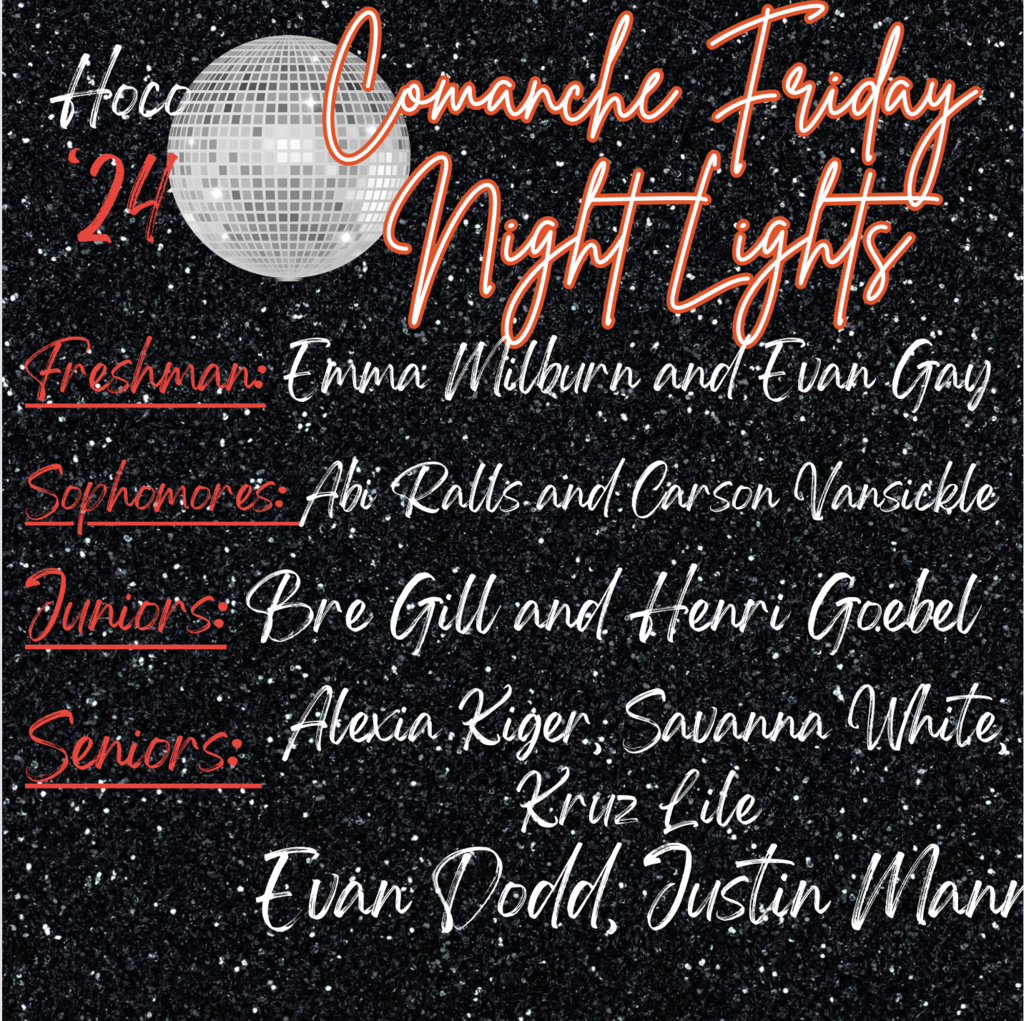 Hoco
'24
Comanche Friday
Night Lights
Freshman: Emma Milburn and Evan Gay
Sophomores: Abi Ralls and Carson Vansickle
Juniors: Bre Gill and Henri Goebel
Seniors: Alexia Kiger, Savanna White,
Kruz Lile
Evan Dodd, Justin Mann